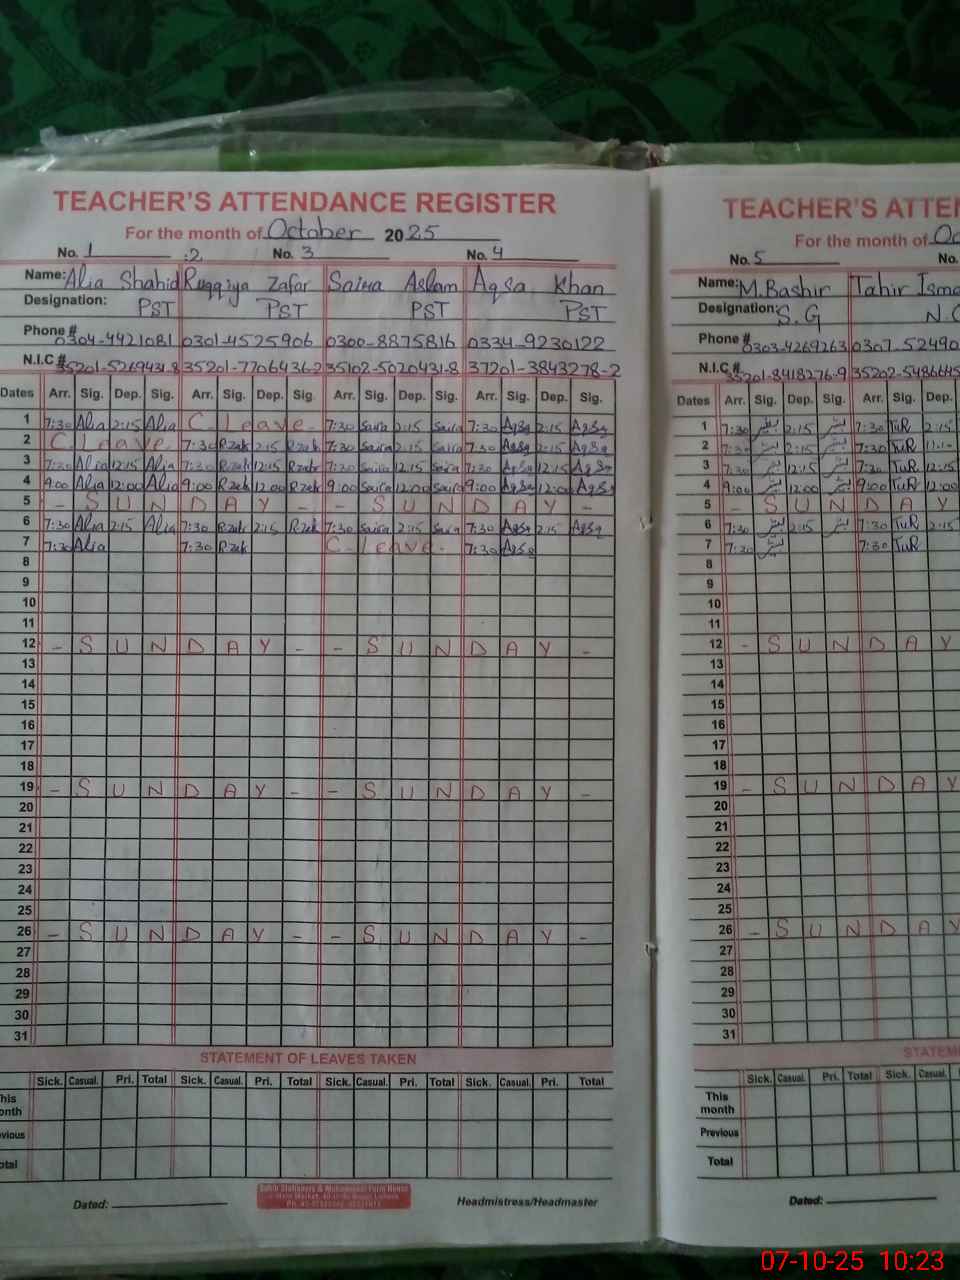 TEACHER'S ATTENDANCE REGISTER
For the month of October 2025
No. 1 :2 No. 3 No. 4
Name: Alia Shahid Ruqqiya Zafar Saira Aslam Aqsa Khan
Designation: PST PST PST PST
Phone # 0304-4421081 0301-4525906 0300-8875816 0334-9230122
N.I.C # 35201-5269431-8 35201-7706436-2 35102-5020431-8 37201-3843278-2
Dates Arr. Sig. Dep. Sig. Arr. Sig. Dep. Sig. Arr. Sig. Dep. Sig. Arr. Sig. Dep. Sig.
1 7:30 Alia 2:15 Alia C. Leave. 7:30 Saira 2:15 Saira 7:30 Aqsa 2:15 Aqsa
2 C. Leave. 7:30 Rzak 2:15 Rzak 7:30 Saira 2:15 Saira 7:30 Aqsa 2:15 Aqsa
3 7:30 Alia 12:15 Alia 7:30 Rzak 12:15 Rzak 7:30 Saira 12:15 Saira 7:30 Aqsa 12:15 Aqsa
4 9:00 Alia 12:00 Alia 9:00 Rzak 12:00 Rzak 9:00 Saira 12:00 Saira 9:00 Aqsa 12:00 Aqsa
5 - S U N D A Y - - S U N D A Y -
6 7:30 Alia 2:15 Alia 7:30 Rzak 2:15 Rzak 7:30 Saira 2:15 Saira 7:30 Aqsa 2:15 Aqsa
7 7:30 Alia 7:30 Rzak C. Leave. 7:30 Aqsa
8
9
10
11
12 - S U N D A Y - - S U N D A Y -
13
14
15
16
17
18
19 - S U N D A Y - - S U N D A Y -
20
21
22
23
24
25
26 - S U N D A Y - - S U N D A Y -
27
28
29
30
31
STATEMENT OF LEAVES TAKEN
Sick. Casual. Pri. Total Sick. Casual. Pri. Total Sick. Casual. Pri. Total Sick. Casual. Pri. Total
his
onth
vious
otal
Dated: Headmistress/Headmaster
TEACHER'S ATTEN
For the month of Oc
No. 5 No.
Name: M.Bashir Tahir Isma
Designation: S.G N.C
Phone # 0303-4269263 0307-52490
N.I.C # 35201-8418276-9 35202-5486645
Dates Arr. Sig. Dep. Sig. Arr. Sig. Dep.
1 7:30 2:15 7:30 TuR 2:15
2 7:30 2:15 7:30 TuR
3 7:30 12:15 7:30 TuR 12:15
4 9:00 12:00 9:00 TuR 12:00
5 - S U N D A Y
6 7:30 2:15 7:30 TuR 2:15
7 7:30 7:30 TuR
8
9
10
11
12 - S U N D A Y
13
14
15
16
17
18
19 - S U N D A Y
20
21
22
23
24
25
26 - S U N D A Y
27
28
29
30
31
STATEM
Sick. Casual. Pri. Total Sick. Casual.
This
month
Previous
Total
Dated:
07-10-25 10:23